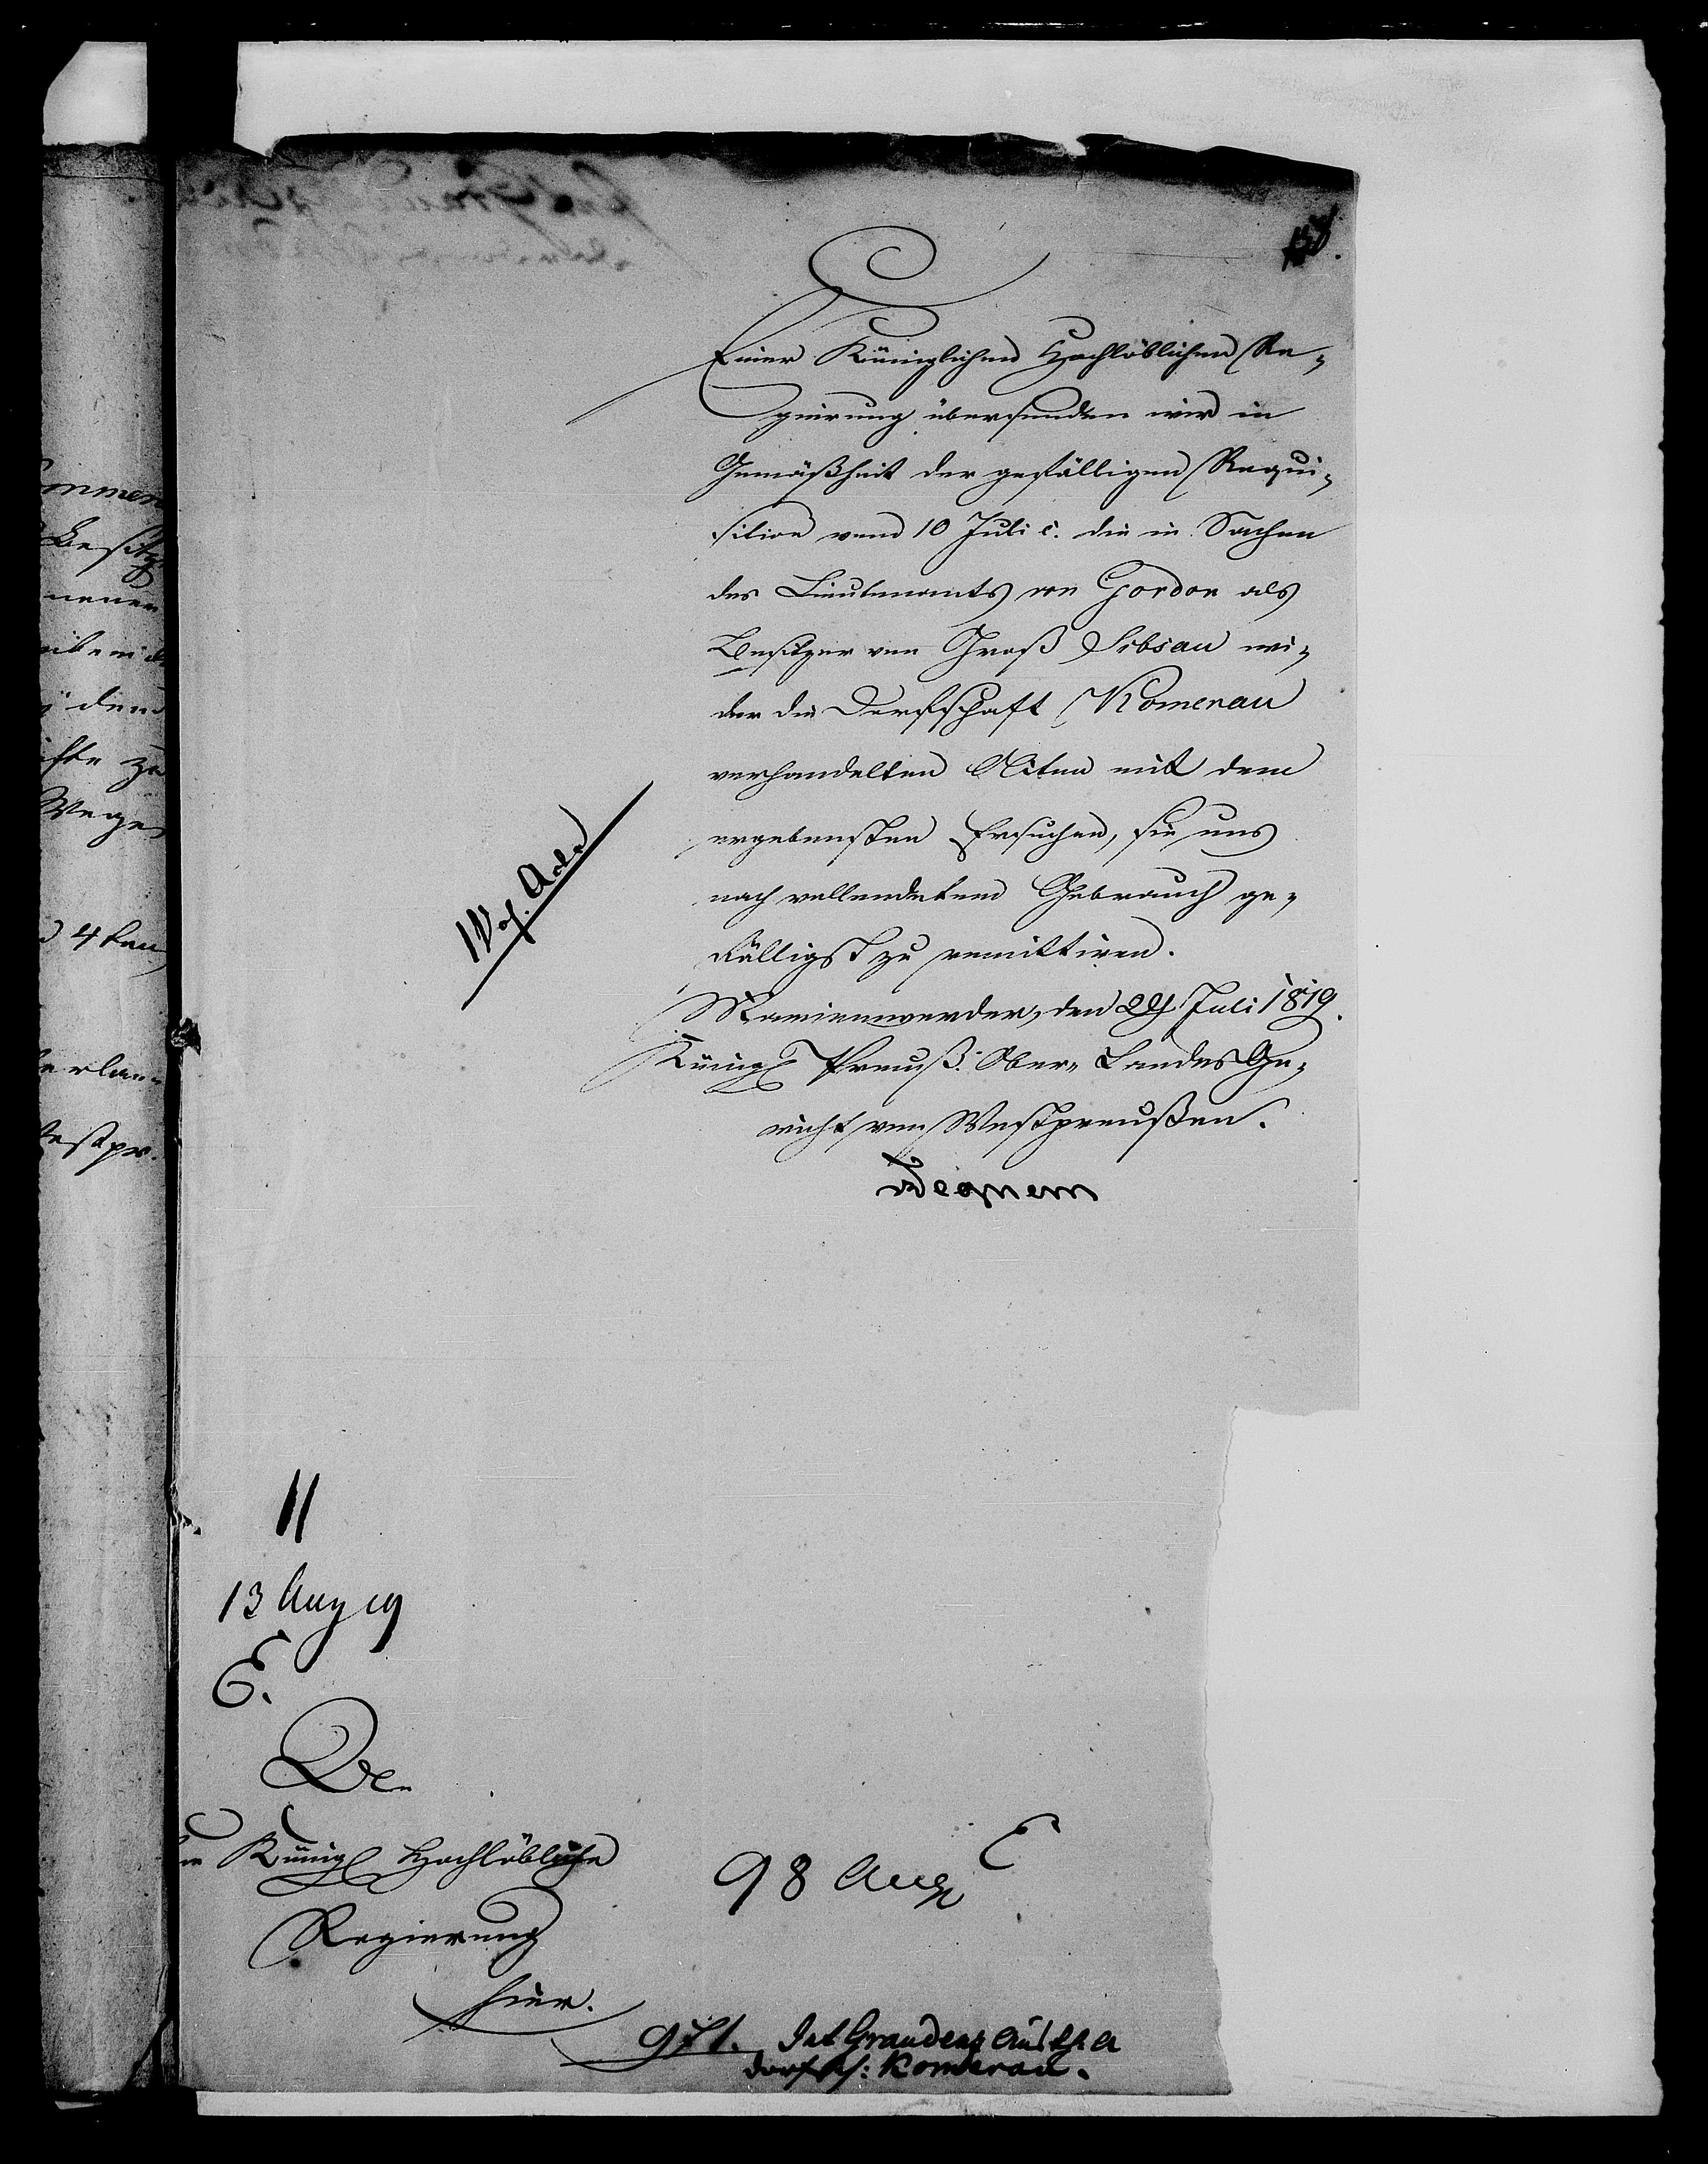 Einer Königlichen Hochlöblichen Re-
gierung übersenden wir in
Gemäßheit der gefälligen Requi-
sition vom 10 Juli c. die in Sachen
des Lieutenants von Gordon als
Besitzer von Groß Sibsau wi-
der die Dorfschaft Komerau
verhandelten Akten mit dem
ergebensten Ersuchen, sie uns
nach vollendetem Gebrauch ge-
fälligst zu remittiren.
Marienwerder, den 29 Juli 1819.
Königl Preuß. Ober-Landes Ge-
richt von Westpreußen.
11
13 Aug 19
E.
Königl Hochlöbliche
Regierung
hier.
98 Aug E
971. Int Graudenz
Dorfsch: Komerau.
mmen
Besitz
neuen
dem
zu
Weges
4 ten
erlan-
estpr.